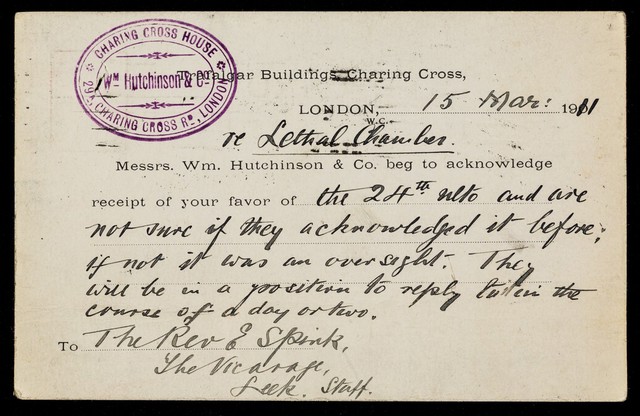 CHARING CROSS HOUSE
Wm Hutchinson & Co
29A, CHARING CROSS RD, LONDON
Trafalgar Buildings, Charing Cross,
LONDON, 15 Mar: 1911
W.C.
re Lethal Chamber.
Messrs. Wm. Hutchinson & Co. beg to acknowledge
receipt of your favor of the 24th ulto and are
not sure if they acknowledged it before;
if not it was an oversight. They
will be in a position to reply to it in the
course of a day or two.
To The Rev E Spink,
The Vicarage,
Leek. Staff.